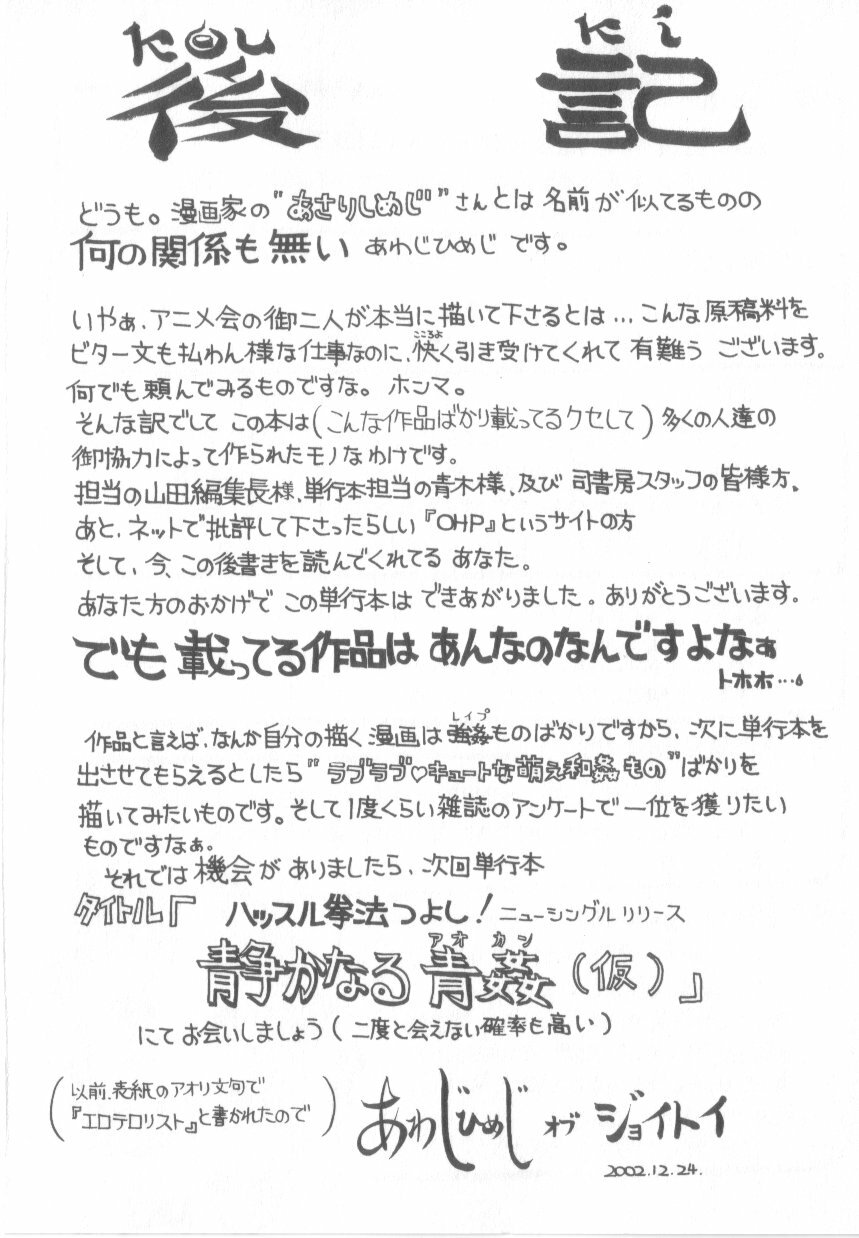 KOU Ki
後 記
どうも。漫画家の"あさりしめじ"さんとは 名前が似てるものの
何の関係も無い あわじひめじ です。
いやぁ、アニメ会の御二人が本当に描いて下さるとは…こんな原稿料を
ビタ一文も払わん様な仕事なのに、快く引き受けてくれて 有難う ございます。
こころよ
何でも頼んでみるものですな。ホンマ。
そんな訳でして この本は(こんな作品ばかり載ってるクセして)多くの人達の
御協力によって作られたモノなわけです。
担当の山田編集長様、単行本担当の青木様、及び 司書房スタッフの皆様方。
あと、ネットで批評して下さったらしい『OHP』というサイトの方
そして、今、この後書きを読んでくれてる あなた。
あなた方のおかげで この単行本は できあがりました。ありがとうございます。
でも 載ってる作品は あんなのなんですよなぁ
トホホ…。
作品と言えば、なんか自分の描く漫画は強姦ものばかりですから、次に単行本を
レイプ
出させてもらえるとしたら"ラブラブ♡キュートな萌え和姦もの"ばかりを
描いてみたいものです。そして1度くらい雑誌のアンケートで一位を獲りたい
ものですなぁ。
それでは 機会が ありましたら、次回単行本
タイトル『 ハッスル拳法つよし! ニューシングルリリース
アオカン
静かなる 青姦 (仮)』
にて お会いしましょう(二度と会えない確率も高い)
(以前、表紙のアオリ文句で
『エロテロリスト』と書かれたので)
あわじひめじ オブ ジョイトイ
2002.12.24.